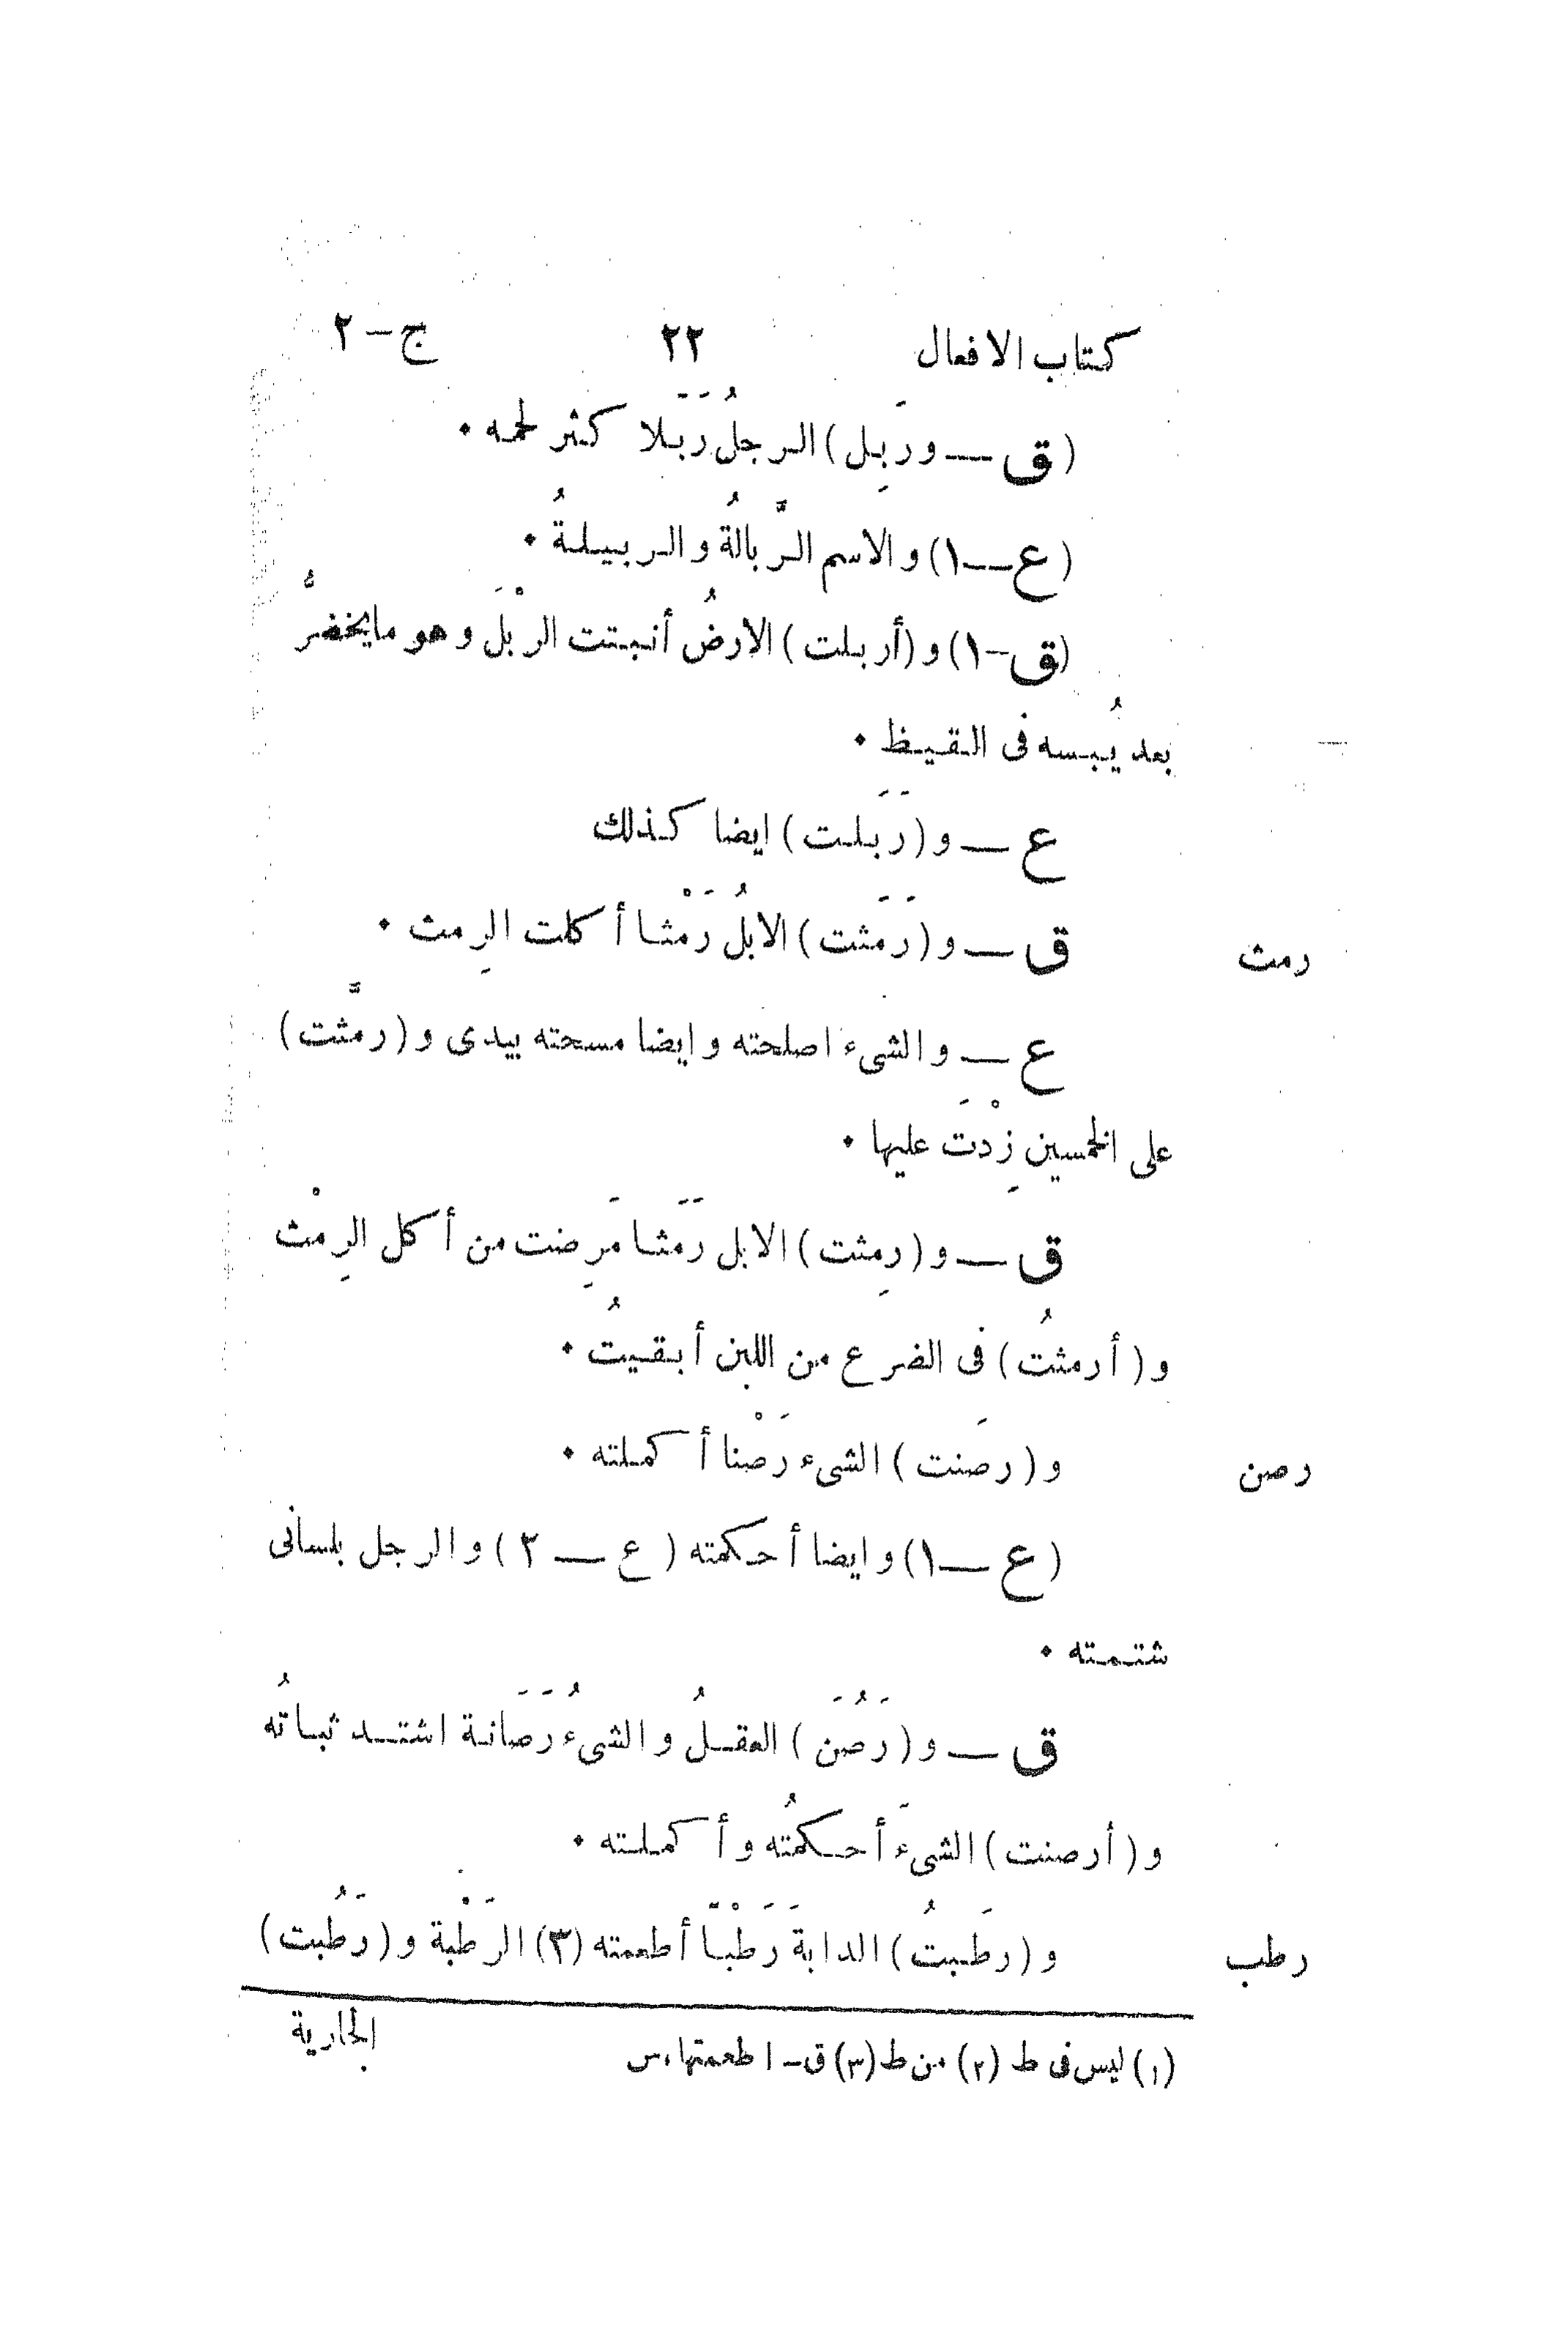 كتاب الافعال ٢٢ ج – ٢
(ق — ورَبِل) الرجلُ رَبَلا كثر لحمه ٠
(ع — ١) و الاسم الرَّبالةُ و الربيلةُ ٠
(ق – ١) و (أربلت) الارضُ أنبتت الربْلَ وهو ما يخضرُّ
بعد يُبسه فى القيظ ٠
ع — و (رَبَلت) ايضا كذلك
رمث ق — و (رَمَثت) الابلُ رَمْثا أكلت الرِمث ٠
ع — و الشىء اصلحته و ايضا مسحته بيدى و (رمَّثت)
على الخمسين زِدْتَ عليها ٠
ق — و (رمِثت) الابل رَمَثا مَرِضت من أكل الرِمْث
و (أرمثتُ) فى الضرع من اللبن أبقيتُ ٠
رصن و (رصَنت) الشىء رَصْنا أكملته ٠
(ع — ١) و ايضا أحكمته (ع — ٢) و الرجل بلسانى
شتمته ٠
ق — و (رَصُنَ) العقلُ و الشىءُ رَصَانة اشتد ثباتُه
و (أرصنت) الشىءَ أحكمتُه و أكملته ٠
رطب و (رطَبتُ) الدابةَ رَطْبًا أطعمته (٣) الرَطْبة و (رَطُبت)
الجارية
(١) ليس فى ط (٢) من ط (٣) ق – اطعمتها، س